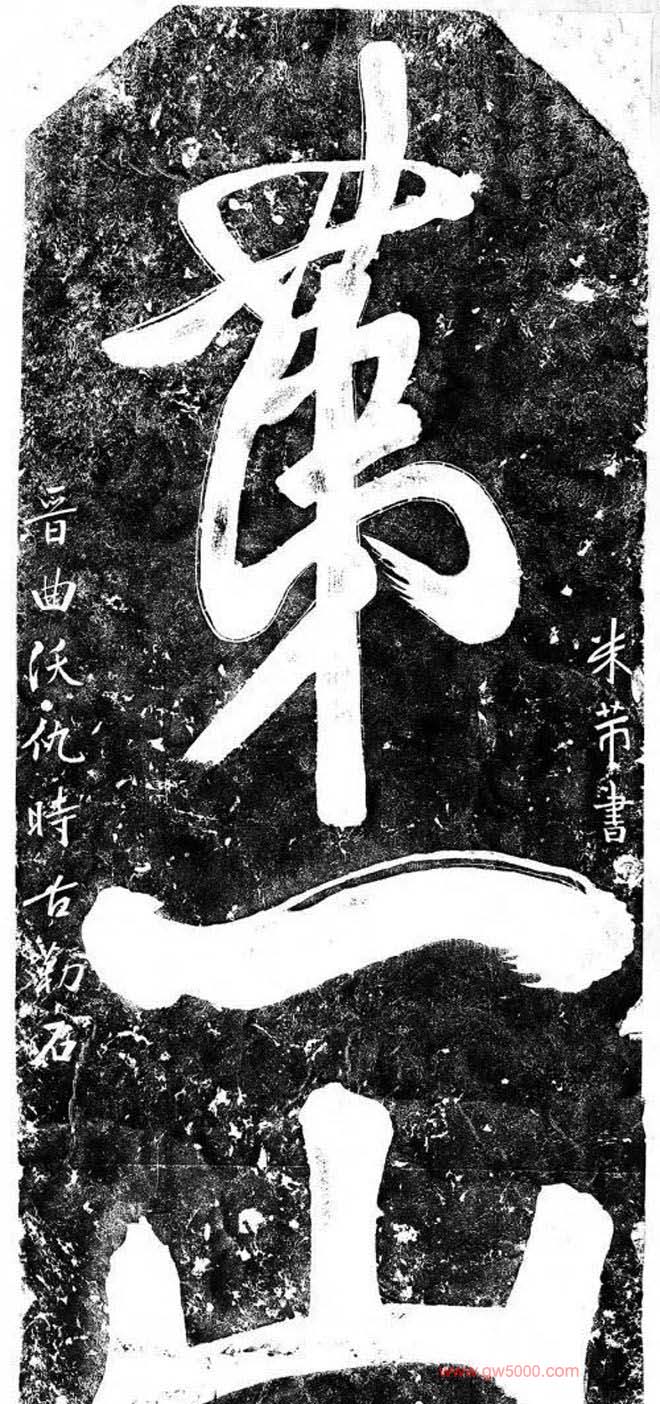 米芾書
第一山
晉曲沃仇時古勒石
www.gw5000.com